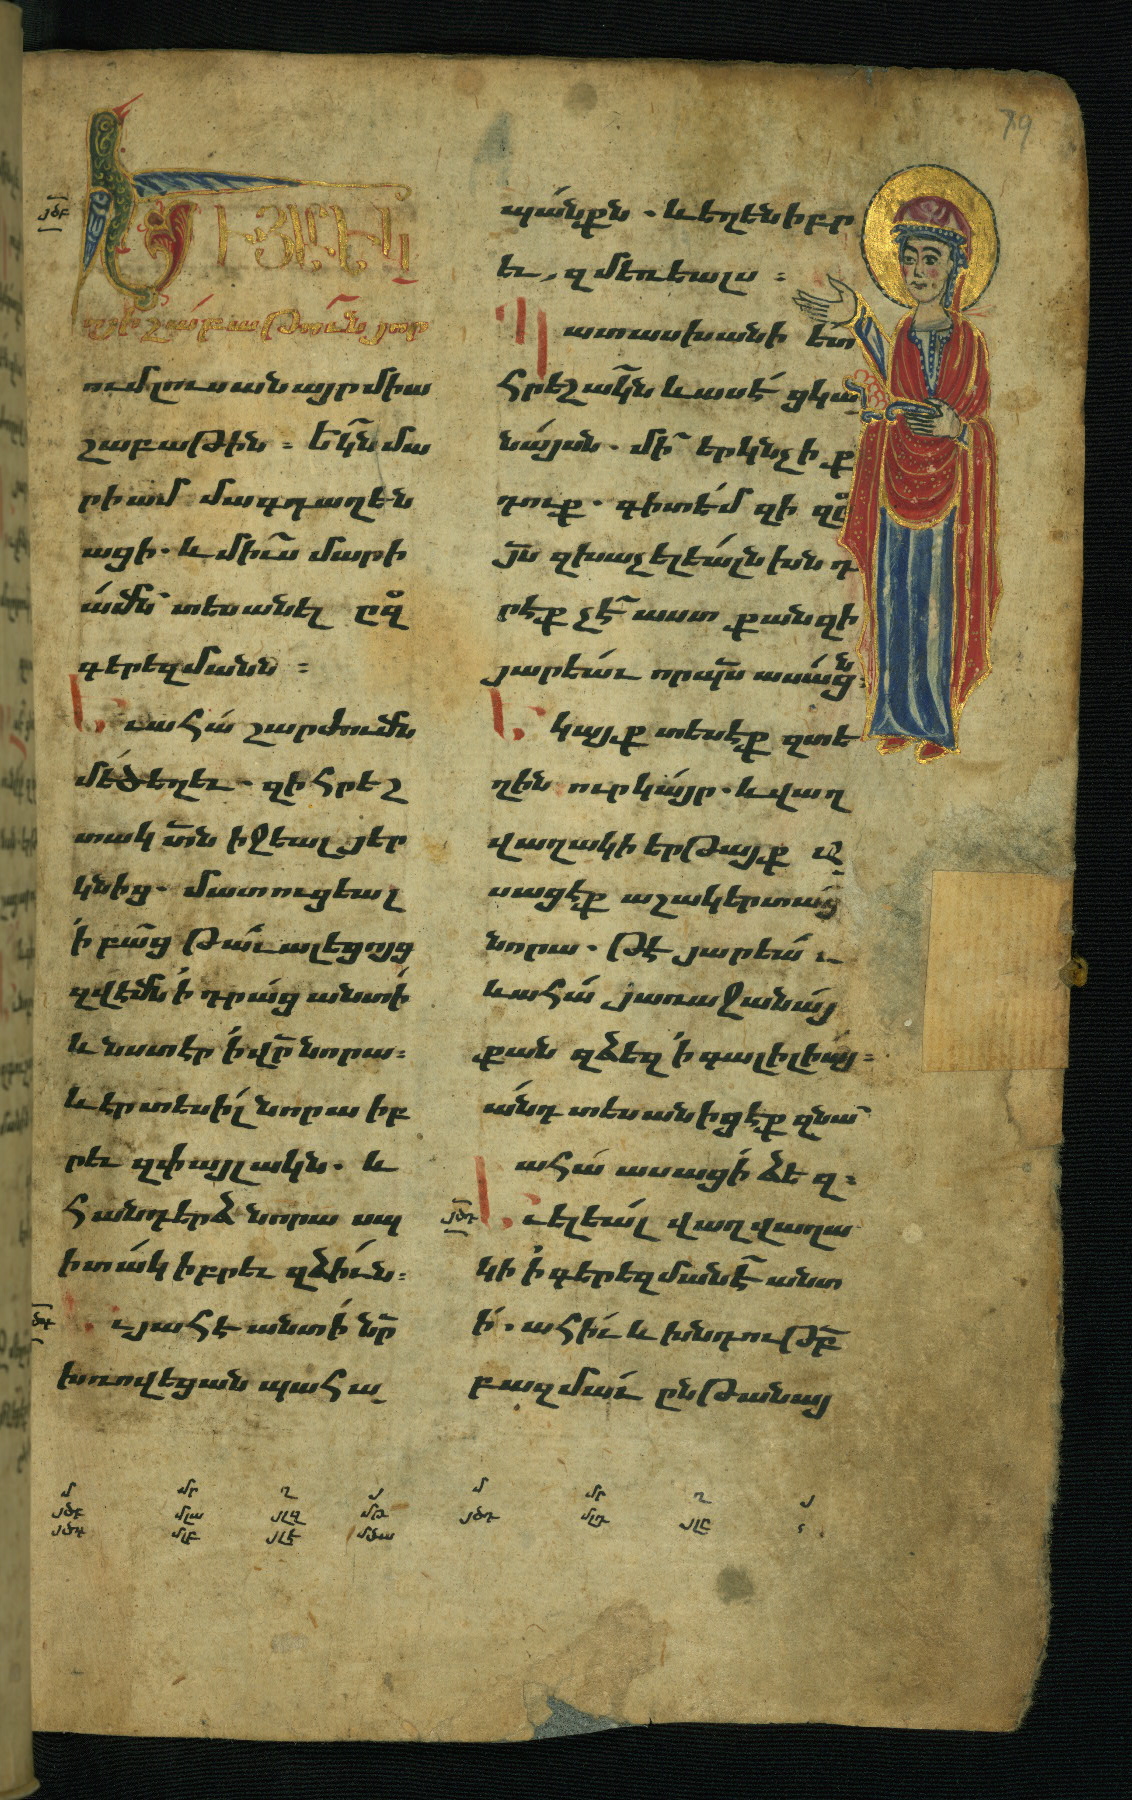 79
յծբ
ԵՒ ՅԵՐԵԿ
ոյին շաբաթուն յոր
ում լուսանայր միա
շաբաթին ։ Եկն մա
րիամ մագդաղեն
ացի . և միւս մարի
ամն տեսանել ըզ
գերեզմանն ։
Եւ ահա շարժումն
մեծ եղեւ . զի հրեշ
տակ տն իջեալ յեր
կնից . մատուցեալ
ի բաց թաւալեցոյց
զվեմն ի դրաց անտի
և նստէր ի վր նորա ։
և էր տեսիլ նորա իբ
րեւ զփայլակն . և
հանդերձ նորա սպ
իտակ իբրեւ զձիւն ։
յծդ
Եւ յահէ անտի նր
խռովեցան պահա
պանքն . և եղեն իբր
եւ զմեռեալս ։
Պատասխանի ետ
հրեշակն և ասէ ցկա
նայսն . մի երկնչիք
դուք . գիտեմ զի զը
յս զխաչելեալն խնդ
րէք չէ աստ քանզի
յարեաւ որպս ասացն ։
Եկայք տեսէք զտե
ղին ուր կայր . և վաղ
վաղակի երթայք ա
սացէք աշակերտաց
նորա . թէ յարեաւ
և ահա յառաջանայ
քան զձեզ ի գալիլիայ ։
անդ տեսանիցէք զնա
ահա ասացի ձեզ ։
յծդ
Եւ ելեալ վաղվաղա
կի ի գերեզմանէ անտ
ի . ահիւ և խնդութբ
բազմաւ ընթանայ
մ մր ղ յ մ մր ղ յ
յծբ մլա յլզ մթ յծդ մլդ յլբ
յծդ մլբ յլէ մծա